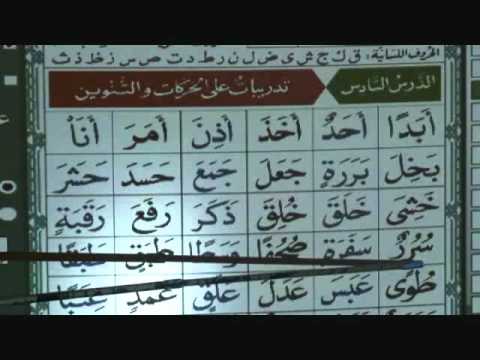 الحروف اللسانية: ق ك ج ش ي ض ل ن ر ط د ت ص س ز ظ ذ ث
الدرس السادس تدريبات على الحركات والتنوين
أَبَدًا أَحَدٌ أَخَذَ أَذِنَ أَمَرَ أَنَا
بَخِلَ بَرَرَةٍ جَعَلَ جَمَعَ حَسَدَ حَشَرَ
خَشِيَ خَلَقَ خُلِقَ ذَكَرَ رَفَعَ رَقَبَةٍ
سُرُرٌ سَفَرَةٍ صُحُفًا طَبَقٍ طَبَقًا
طُوًى عَبَسَ عَدَلَ عَلَقٍ عَمَدٍ عِنَبًا